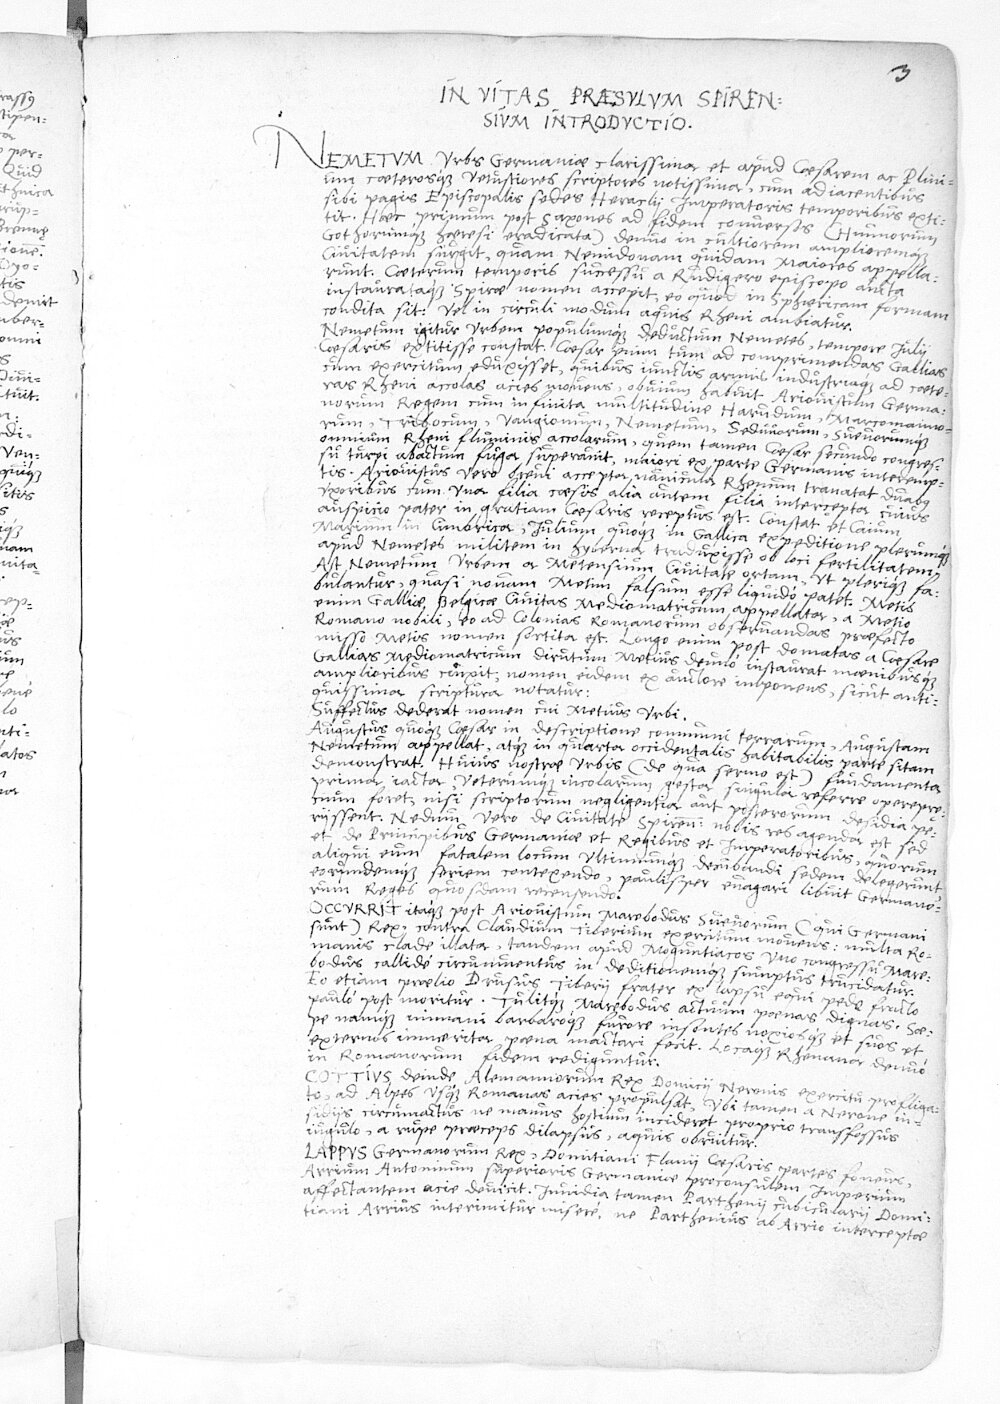 3
IN VITAS PRÆSVLVM SPIREN:
SIVM INTRODVCTIO.
NEMETVM Vrbs Germaniæ clarissima et apud Cæsarem ac Plini-
um cæterosq́ꝫ vetustiores scriptores notissima, cum adiacentibus
sibi pagis Episcopalis sedes Heraclij Imperatoris temporibus exti-
tit. Hæc primum post Saxones ad fidem conuersos (Hunnorum
Gothorumq́ꝫ hæresi eradicata) denuo in cultiorem amplioremq́ꝫ
Ciuitatem surgit, quam Nemidonam quidam Maiores appella-
runt. Cæterum temporis successu a Rudigero episcopo aucta
instaurataq́ꝫ Spiræ nomen accepit, eo quod in Sphæricam formam
condita sit: Vel in circuli modum aquis Rheni ambiatur.
Nemetum igitur Vrbem populumq́ꝫ deductum Nemetes, tempore Julij
Cæsaris extitisse constat. Cæsar enim tum ad comprimendas Gallias
cum exercitum eduxisset, quibus iunctis armis industriaq́ꝫ ad cæte-
ras Rheni accolas acies mouens, obuium habuit Ariouistum Germa-
norum Regem cum infinita multitudine Harudum, Marcomanno-
rum, Tribocum, Vangionum, Nemetum, Seduuorum, Sueuorumq́ꝫ
omnium Rheni fluminis accolarum, quem tamen Cæsar secundo congres-
su turpi abactum fuga superauit, maiori ex parte Germanis interemp-
tis. Ariouistus vero breui accepta nauicula Rhenum tranatat duabꝫ
vxoribus cum vna filia cæsis alia autem filia intercepta cuius
auspicio pater in gratiam Cæsaris receptus est. Constat et Caium
Marium in Cimbrica, Julium quoq́ꝫ in Gallica expeditione plerumq́ꝫ
apud Nemetes militem in hyberna traduxisse ob loci fertilitatem,
Ast Nemetum Vrbem a Metensium Ciuitate ortam, vt pleriq́ꝫ fa-
bulantur, quasi nouam Metim falsum esse liquidò patet. Metis
enim Galliæ Belgicæ Ciuitas Mediomatricum appellata, a Metio
Romano nobili, eo ad Colonias Romanorum obseruandas præfecto
misso Metis nomen sortita est. Longo enim post domatas a Cæsare
Gallias Mediomatricum dirutum Metius denuò instaurat mœnibusq́ꝫ
amplioribus cinxit, nomen eidem ex auctore imponens, sicut anti-
quissima scriptura notatur:
Suffectus dederat nomen cui Metius Vrbi.
Augustus quoq́ꝫ Cæsar in descriptione communi terrarum, Augustam
Nemetum appellat, atq́ꝫ in quarta occidentalis habitabilis parte sitam
demonstrat. Huius nostræ Vrbis (de qua sermo est) fundamenta
primo iacta, Veterumq́ꝫ incolarum gesta singula referre operepre-
cium foret, nisi scriptorum negligentia aut posterorum desidia pe-
rijssent. Nedum vero de Ciuitate Spiren: nobis res agenda est sed
et de Principibus Germaniæ et Regibus et Imperatoribus, quorum
aliqui eum fatalem locum vltimumq́ꝫ decubandi sedem delegerunt
eorundemq́ꝫ seriem contexendo, paulisper euagari libuit Germano-
rum Reges quosdam recensendo.
OCCVRRIT itaq́ꝫ post Ariouistum Marebodus Sueuorum (qui Germani
sunt) Rex, contra Claudium Tiberium exercitum mouens: multa Ro-
manis clade illata, tandem apud Moguntiacos vno congressu Mare-
bodus callidè circumuentus in deditionemq́ꝫ sumptus trucidatur.
Eo etiam prælio Drusus Tiberij frater ex lapsu equi pede fracto
paulò post moritur. Tulitq́ꝫ Marebodus actuum pœnas dignas. Sæ-
pe namq́ꝫ immani barbaroq́ꝫ furore insontes noxiosq́ꝫ et suos et
externos immerita pœna mactari fecit. Locaq́ꝫ Rhenana denuò
in Romanorum fidem rediguntur.
COTTIVS deinde Alemannorum Rex Domicij Neronis exercitu profliga-
to, ad Alpes vsq́ꝫ Romanas acies propulsat, vbi tamen a Nerone in-
sidijs circumactus ne manus hostium incideret proprio transfossus
iugulo, a rupe præceps dilapsus, aquis obruitur.
LAPPVS Germanorum Rex, Domitiani Flauij Cæsaris partes fouens,
Arrium Antoninum superioris Germaniæ proconsulem Imperium
affectantem acie deuicit. Inuidia tamen Parthenij cubicularij Domi-
tiani Arrius interimitur miserè, ne Parthenius ab Arrio interceptæ